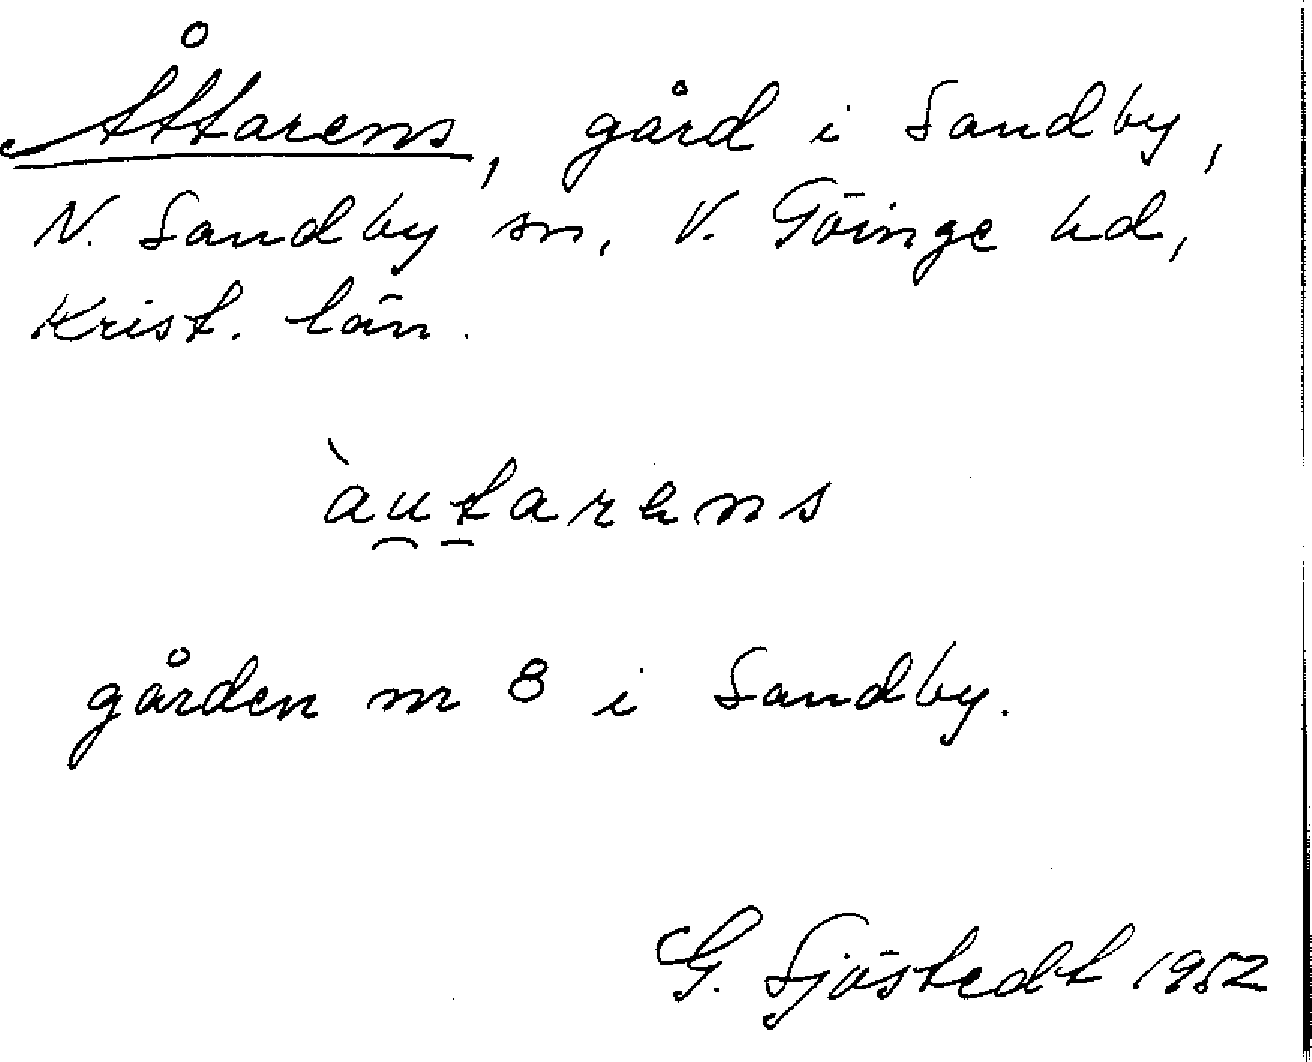 Åttarens, gård i Sandby,
N. Sandby sn, V. Göinge hd,
Krist. län.
àu̯t̠arens
gården nr 8 i Sandby.
G. Sjöstedt 1952